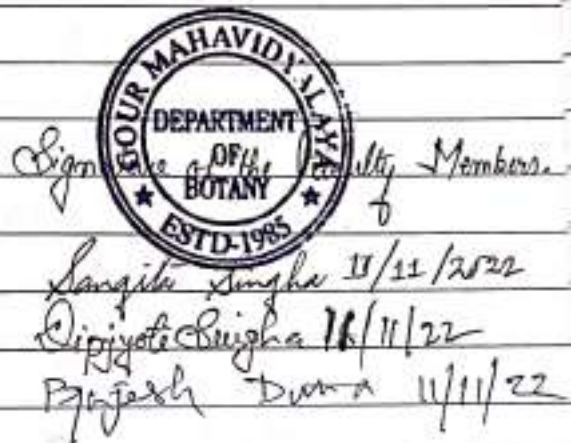 GOUR MAHAVIDYALAYA
DEPARTMENT
OF
BOTANY
ESTD-1985
Signature of the Faculty Members.
Sangita Singha 11/11/2022
Dipjyoti Singha 11/11/22
Brajesh 11/11/22